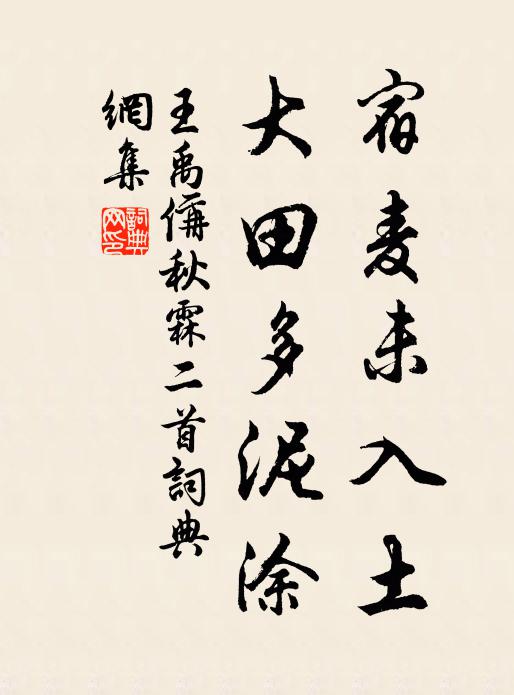 宿麦未入土
大田多泥涂
王禹偁秋霖二首詞典
網集
詞典网印